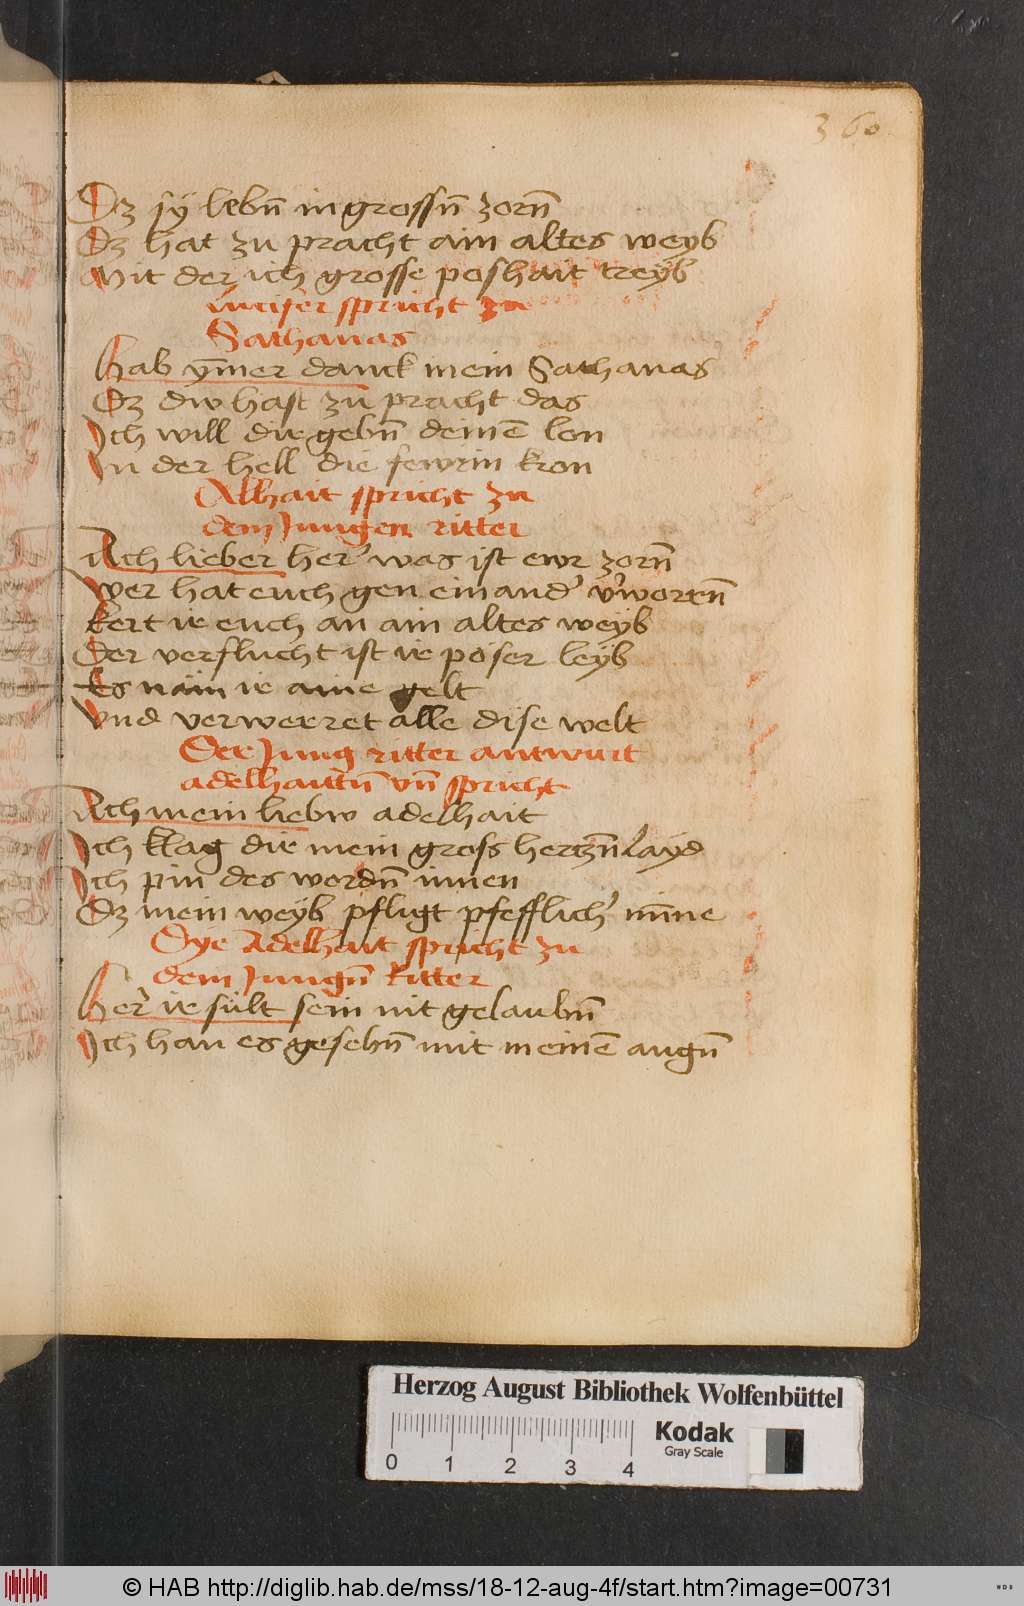 360
Dz sÿ lebn̄ in grossn̄ zorn̄
Dz hat zu pracht ain altes weyb
Mit der ich grosse poshait treÿb
lucifer spricht zu
Sathanas
Hab ym̄er danck mein Sathanas
Dz diw hast zu pracht das
Ich will die gebn̄ deinē lon
In der hell die fewrin kron
Alhait spricht zu
dem Jungen ritter
Ach lieber her was ist ewr zorn̄
Wer hat euch gen einand' v'worrn̄
Kert ir euch an ain altes weyb
Der verflucht ist ir pöser leÿb
Es näm ir aine gelt
Vnd verwerret alle dise welt
Der Jung ritter antwurt
adelhaitn̄ vn̄ spricht
Ach mein liebw adelhait
Ich klag die mein gross hertzn̄ layd
Ich pin des wordn̄ innen
Dz mein weÿb pfligt pfefflich' min̄e
Dye Adelhait spricht zu
dem Jungn̄ Ritter
Her ir sült sein nit gelaubn̄
Ich han es gesehn̄ mit meinē augn̄
Herzog August Bibliothek Wolfenbüttel
0 1 2 3 4
Kodak
Gray Scale
© HAB http://diglib.hab.de/mss/18-12-aug-4f/start.htm?image=00731